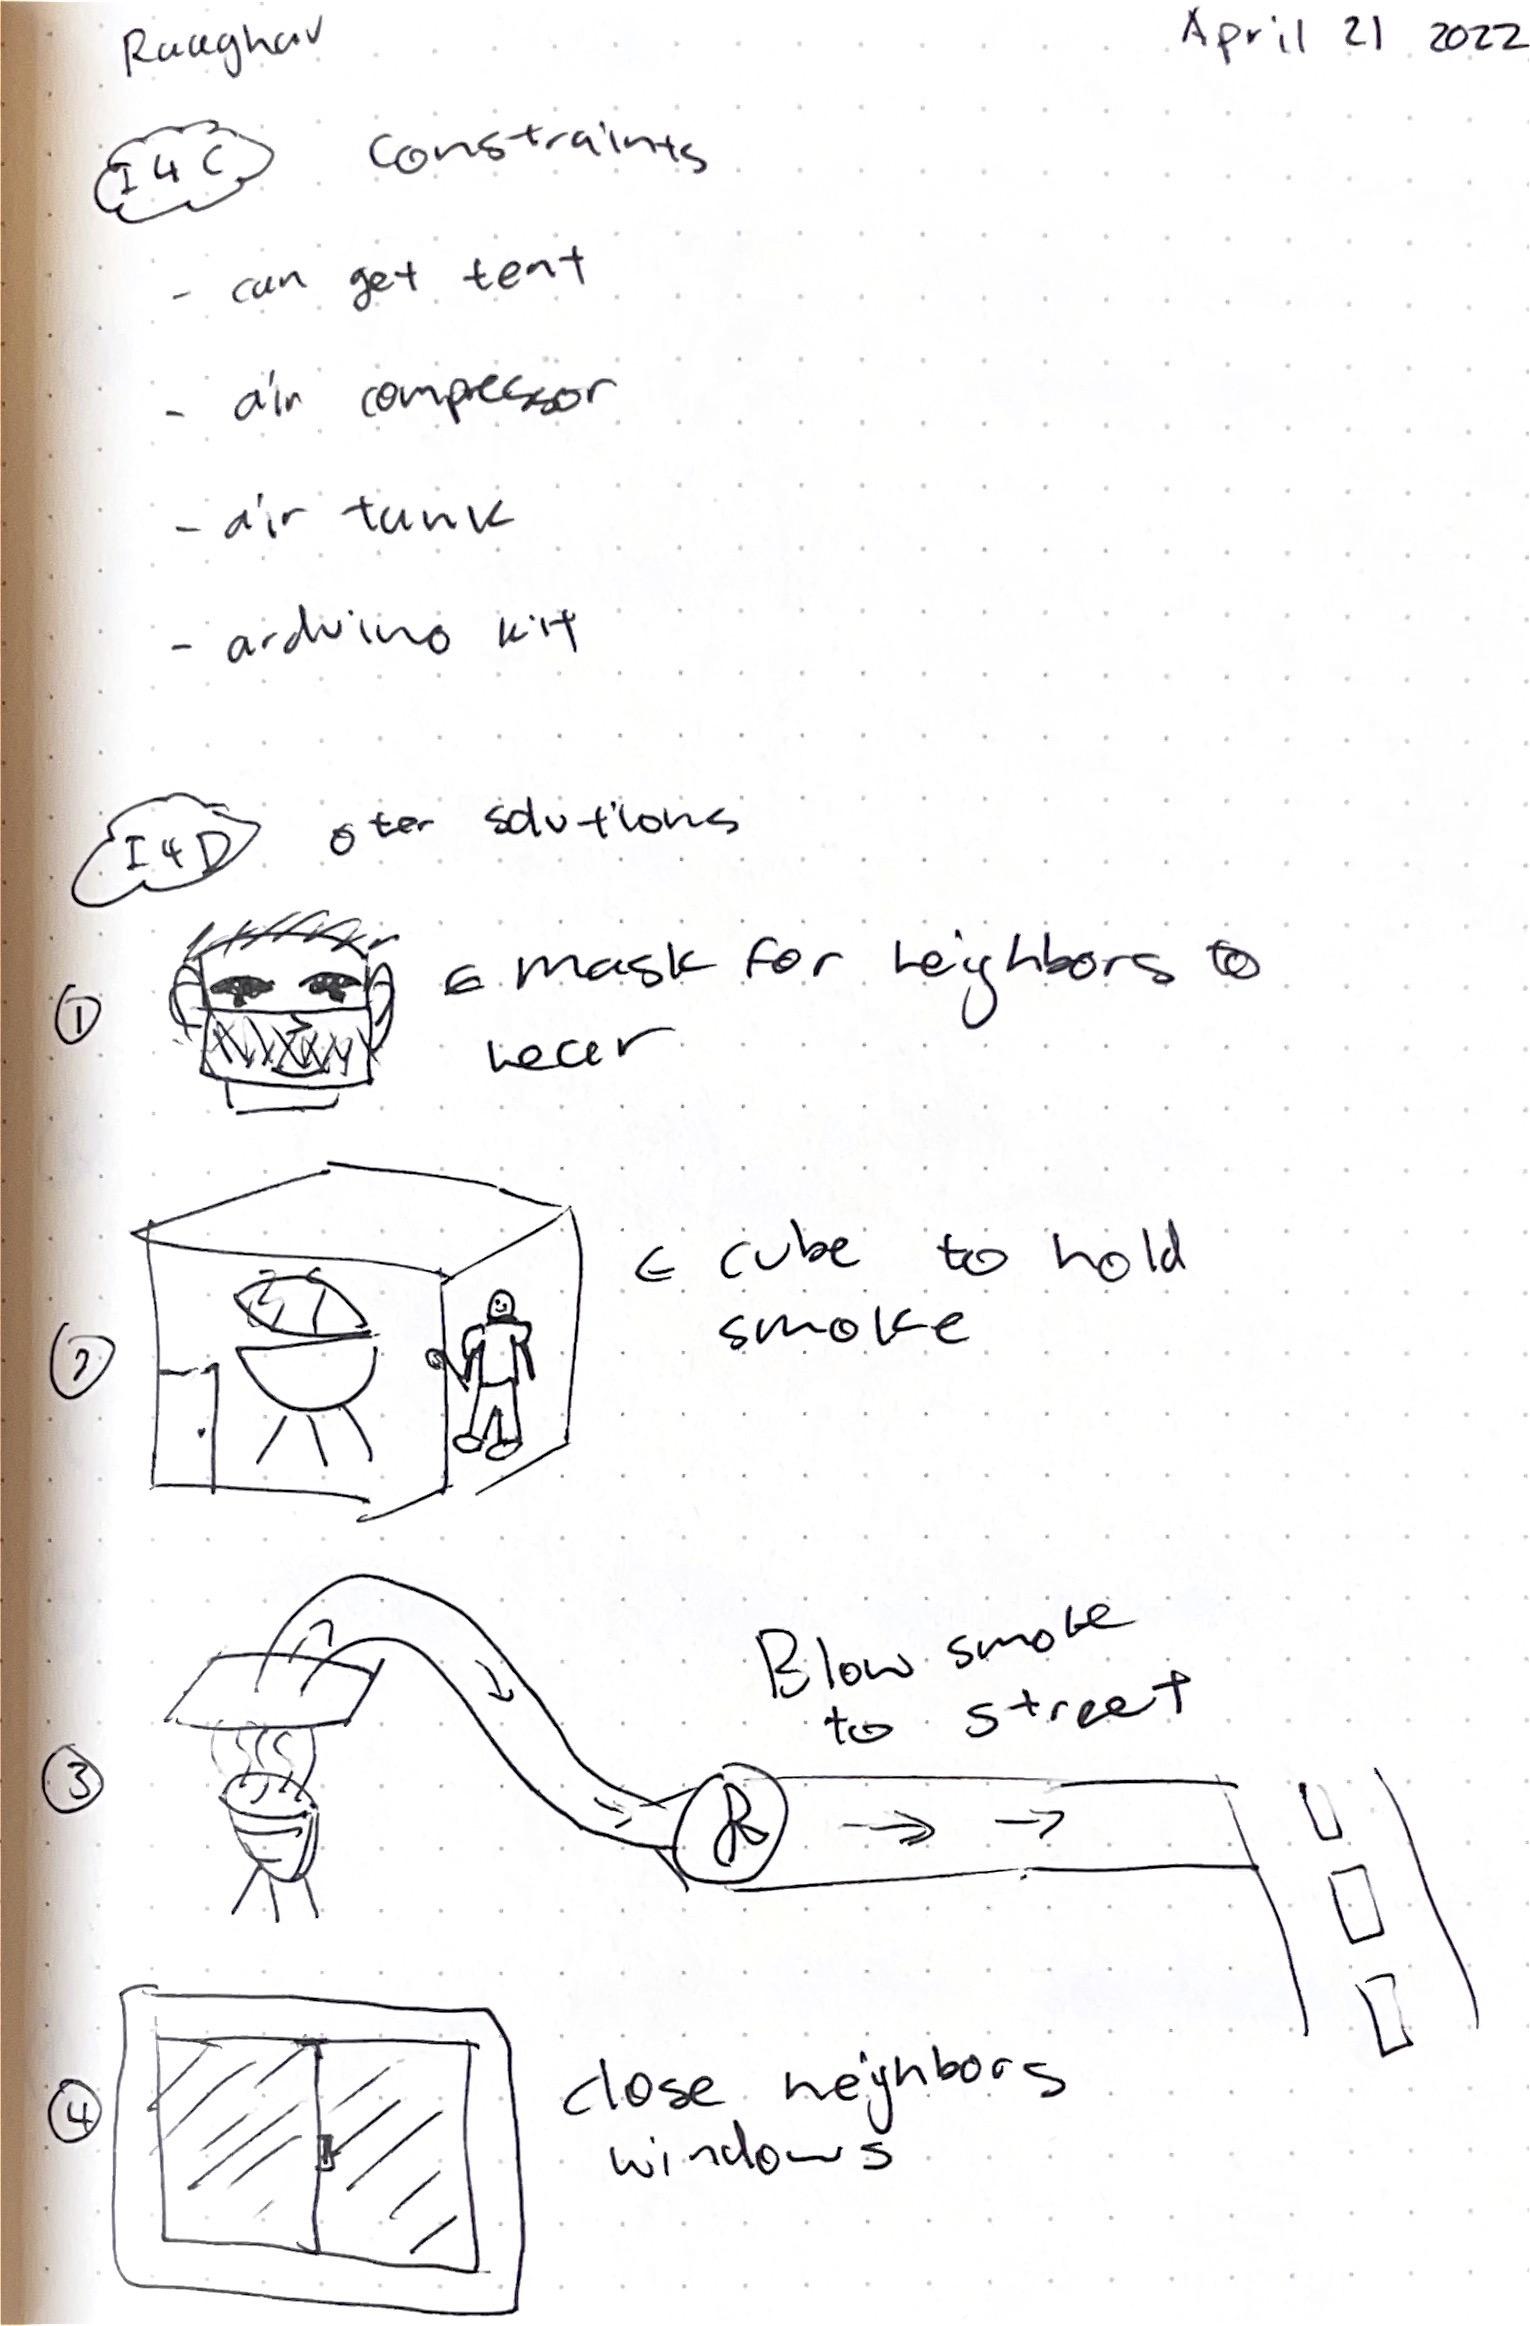 Raaghav April 21 2022
I4C Constraints
- can get tent
- air compressor
- air tank
- arduino kit
I4D oter solutions
① ← mask for neighbors to
wear
② ← cube to hold
smoke
③ Blow smoke
to street
④ close neighbors
windows